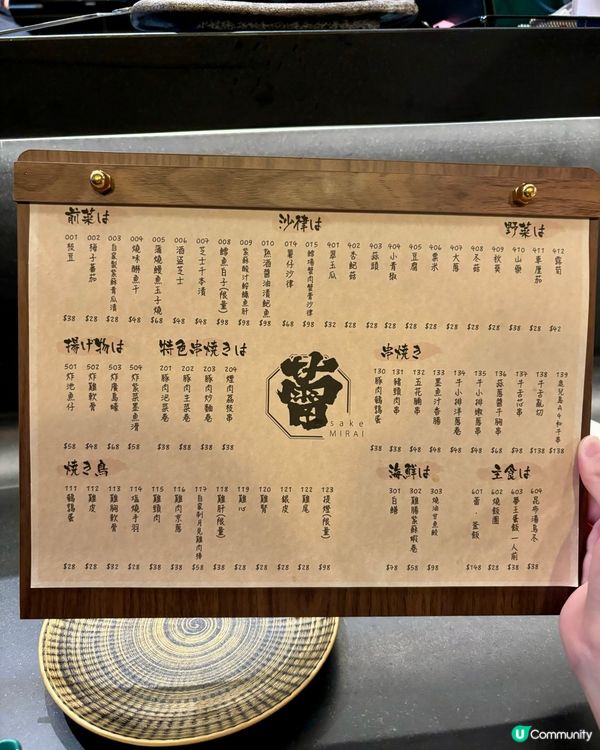 前菜は
001 枝豆 $38
002 梅子番茄 $28
003 自家製紫蘇青瓜漬 $28
004 燒味醂魚干 $48
005 蒲燒鰻魚玉子燒 $68
006 酒盜芝士 $48
007 芝士千本漬 $48
008 鱈魚白子(限量) $98
009 紫蘇酸汁鮟鱇魚肝 $98
010 熟酒醬油漬鮑魚 $98
沙律は
014 薯仔沙律 $68
015 鱈場蟹肉蟹膏沙律 $98
野菜は
401 翠玉瓜 $32
402 杏鮑菇 $28
403 蒜頭 $28
404 小青椒
405 豆腐
406 粟米
407 大蔥 $28
408 冬菇 $28
409 秋葵
410 山藥 $38
411 車厘茄 $28
412 露筍 $42
揚げ物は
501 炸池魚仔 $58
502 炸雞軟骨 $48
503 炸廣島蠔 $68
504 炸紫菜墨魚滑 $58
特色串燒きは
201 豚肉泡菜卷 $38
202 豚肉生菜卷 $38
203 豚肉炒麵卷 $38
204 煙肉荔枝串 $38
蕾
sake
MIRAI
串燒き
130 豚肉鵪鶉蛋 $38
131 豬頸肉串 $38
132 五花腩串
133 墨魚汁香腸
134 牛小排洋蔥卷
135 牛小排嫩蔥串
136 蒜蔥醬牛胸串
137 牛舌芯串
138 牛舌亂切 $138
139 鹿兒島A4和牛串 $138
燒き鳥
111 鵪鶉蛋 $28
112 雞皮 $28
113 雞胸軟骨 $32
114 塩燒手羽 $28
115 雞頸肉 $38
116 雞肉京蔥 $38
117 自家制月見雞肉棒 $58
118 雞肝(限量) $38
119 雞心 $28
120 雞腎 $28
121 銀皮 $28
122 雞尾 $28
123 提燈(限量) $98
海鮮は
301 白鱔 $48
302 雞腸紫蘇蝦卷 $58
303 燒油甘魚鮫 $98
主食は
601 蕾·釜飯 $148
602 燒飯團 $28
603 夢王蛋飯一人前 $38
604 昆布湯烏冬 $38
U Community